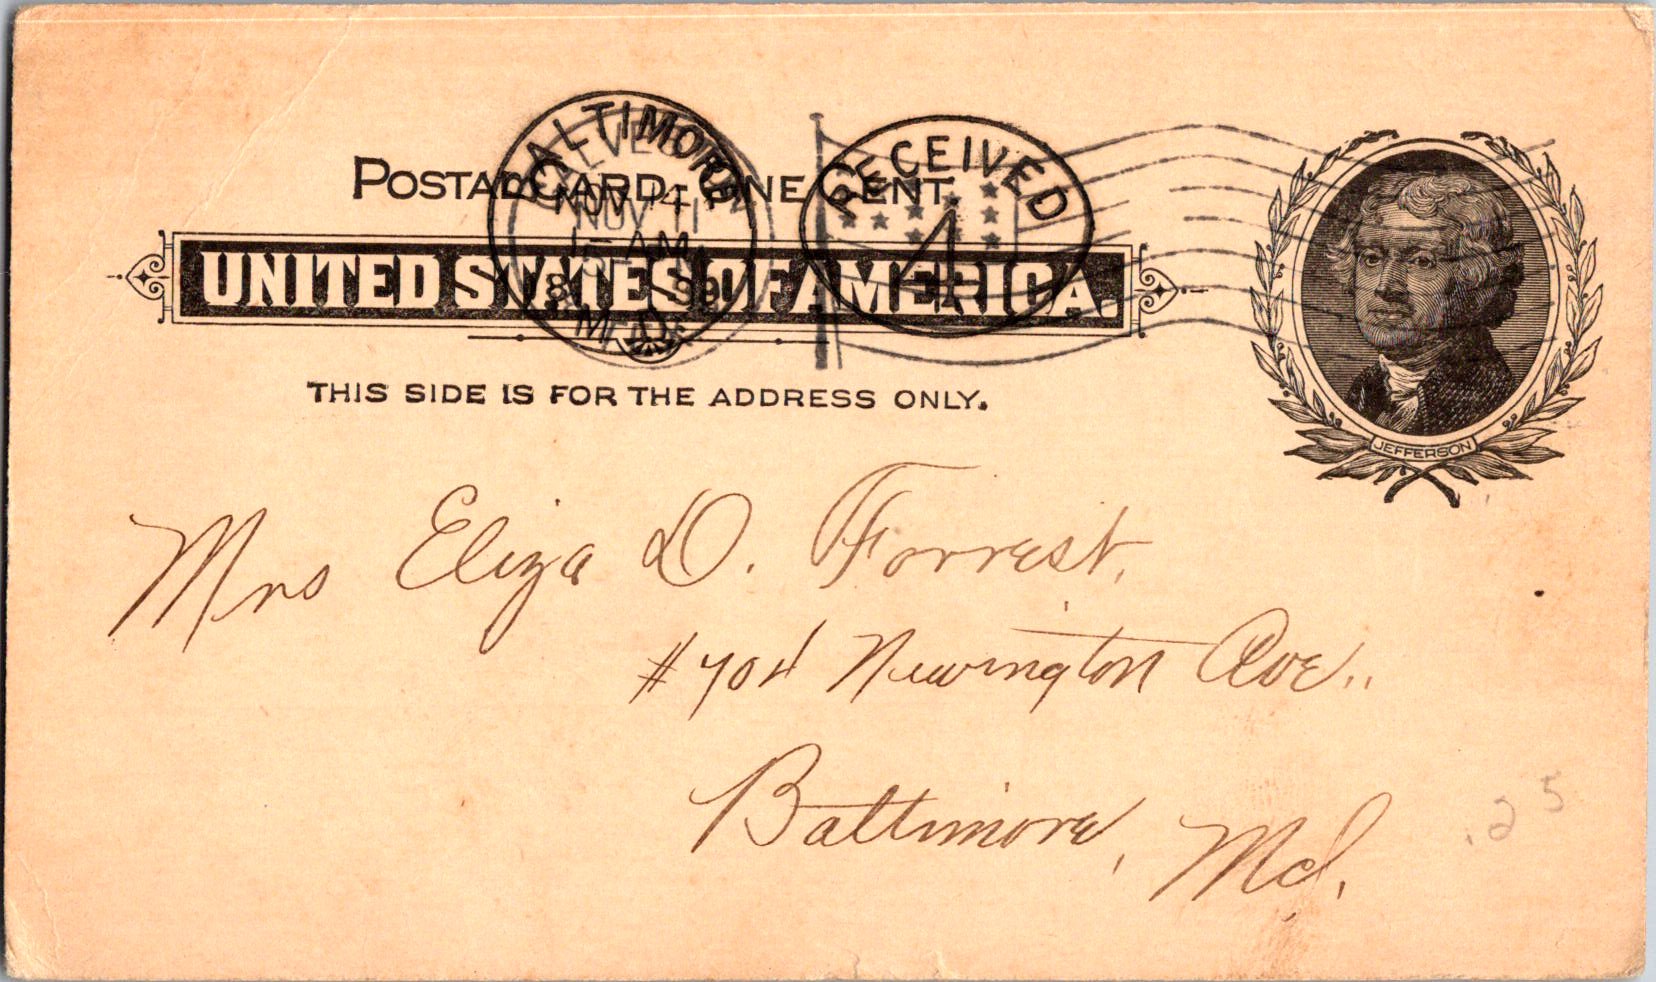 POSTAL CARD. ONE CENT.
UNITED STATES OF AMERICA.
THIS SIDE IS FOR THE ADDRESS ONLY.
JEFFERSON
BALTIMORE
NOV 14
NOV 11
AM
M.D.
RECEIVED
4
Mrs Eliza D. Forrest,
#704 Newington Ave..
Baltimore, Md.
.25